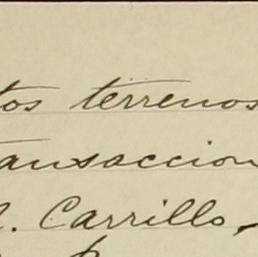 tos terrenos
ansaccion
. Carrillo,